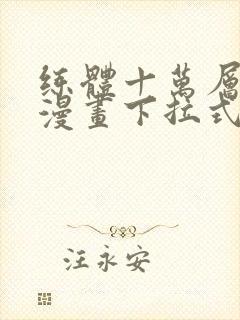 炼體十萬層
漫畫下拉式
汪永安